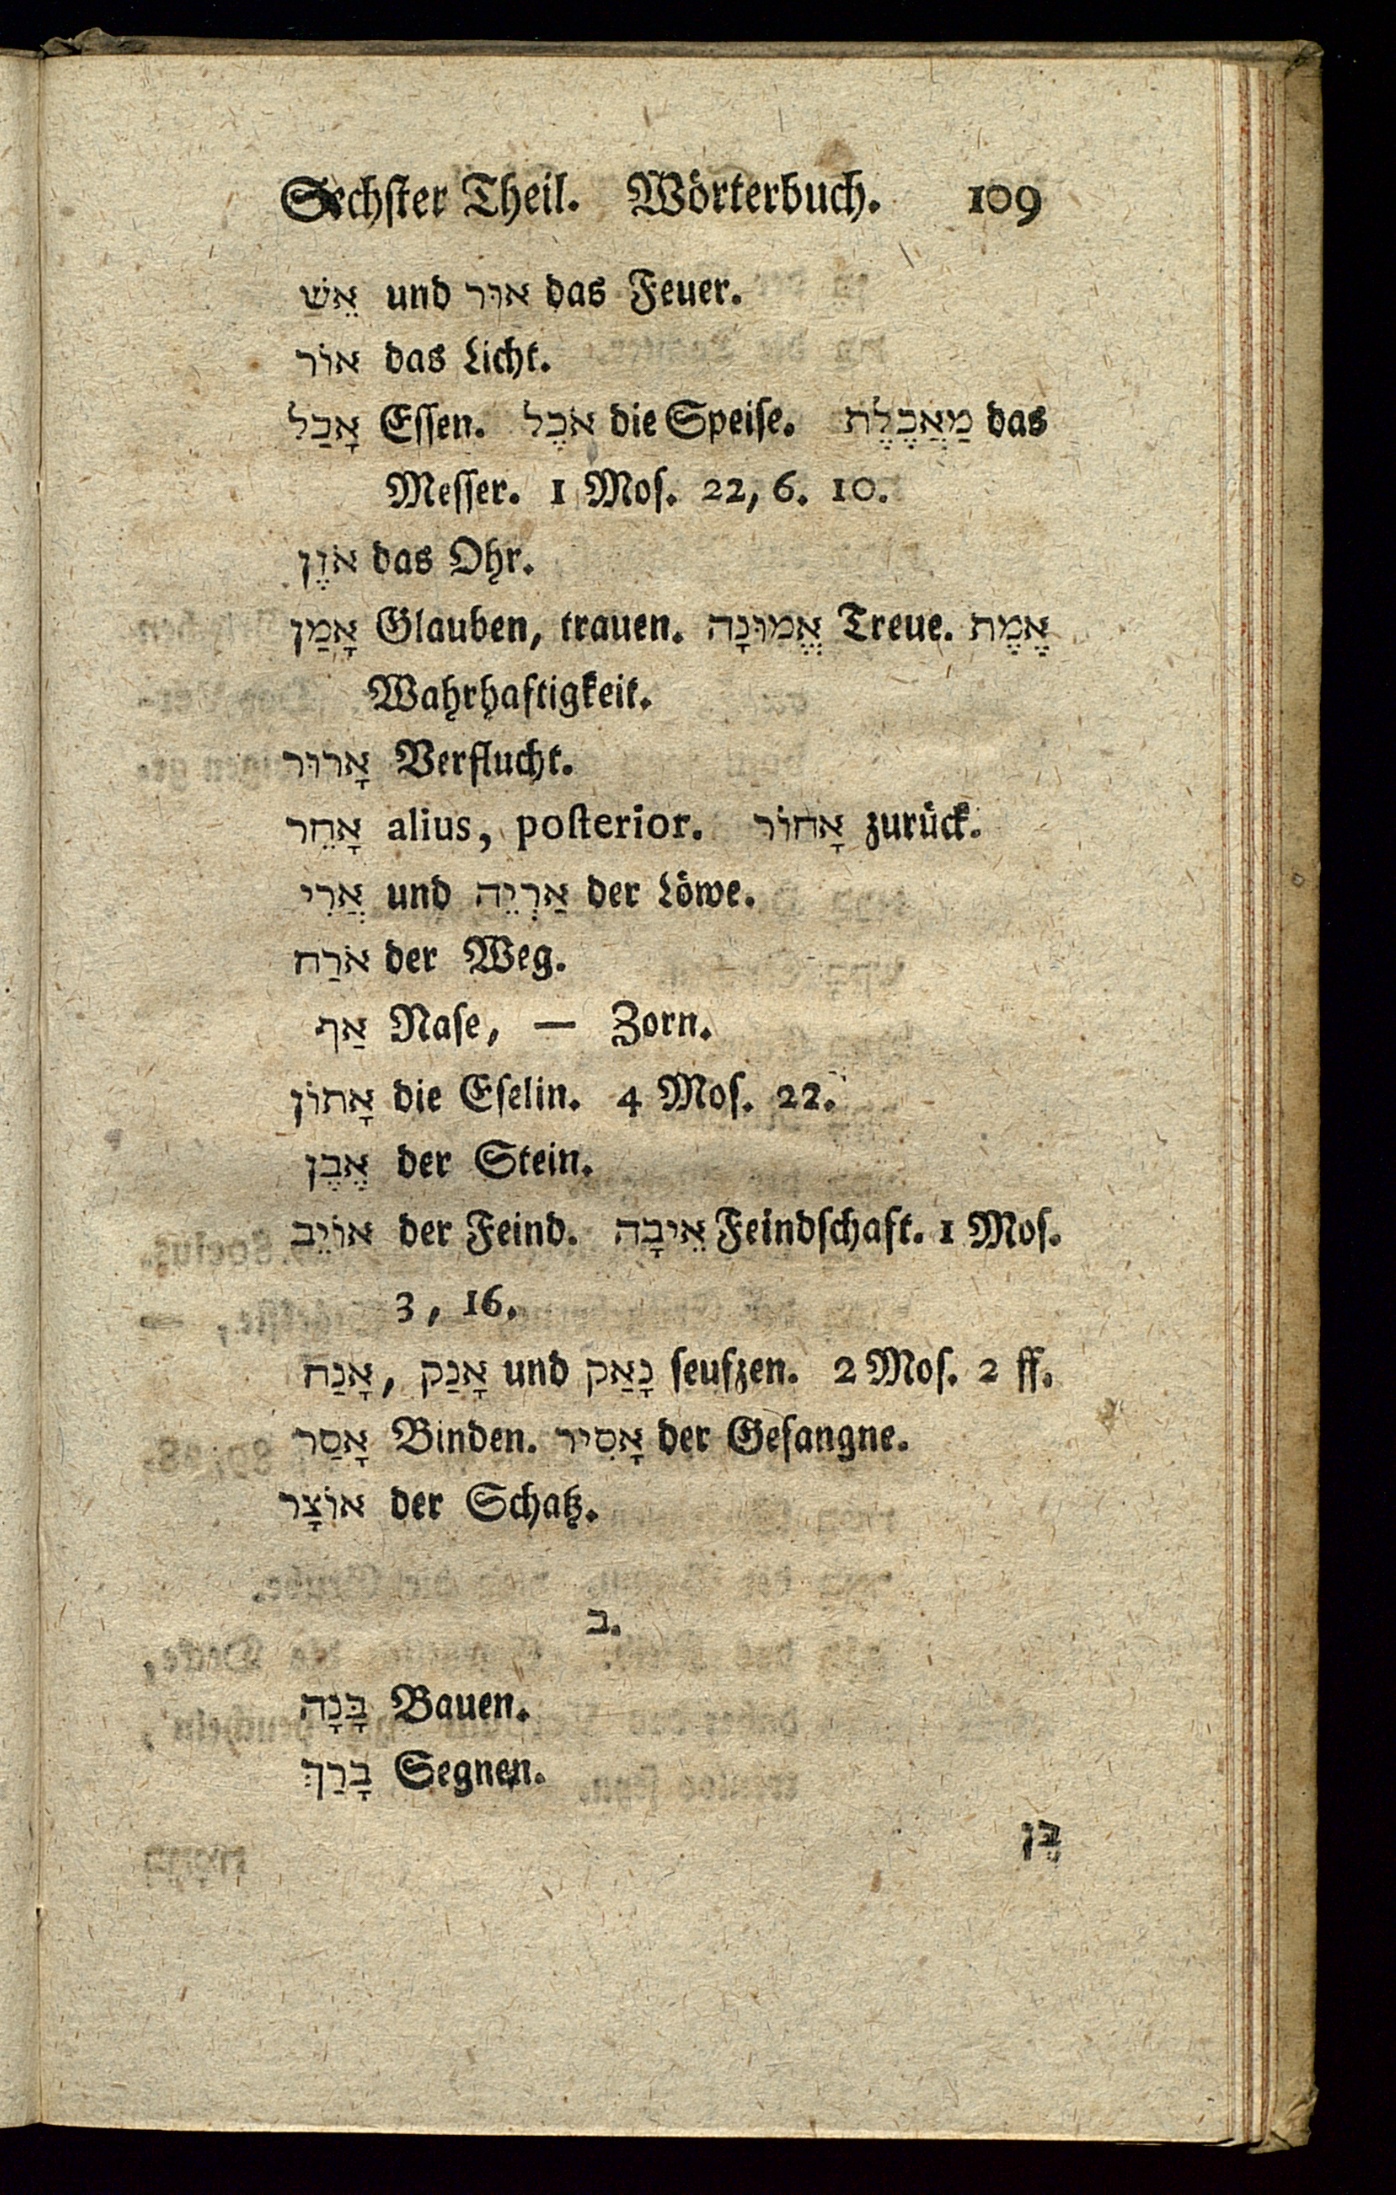 Sechster Theil. Wörterbuch. 109
אֵשׁ und אוּר das Feuer.
אוֹר das Licht.
אָכַל Essen. אֹכֶל die Speise. מַאֲכֶלֶת das
Messer. 1 Mos. 22, 6. 10.
אֹזֶן das Ohr.
אָמַן Glauben, trauen. אֱמוּנָה Treue. אֱמֶת
Wahrhaftigkeit.
אָרוּר Verflucht.
אָחֵר alius, posterior. אָחוֹר zurück.
אֲרִי und אַרְיֵה der Löwe.
אֹרַח der Weg.
אַף Nase, — Zorn.
אָתוֹן die Eselin. 4 Mos. 22.
אֶבֶן der Stein.
אוֹיֵב der Feind. אֵיבָה Feindschaft. 1 Mos.
3, 16.
אָנַח, אָנַק und נָאַק seufzen. 2 Mos. 2 ff.
אָסַר Binden. אָסִיר der Gefangne.
אוֹצָר der Schatz.
ב.
בָּנָה Bauen.
בָרַךְ Segnen.
בֵּן